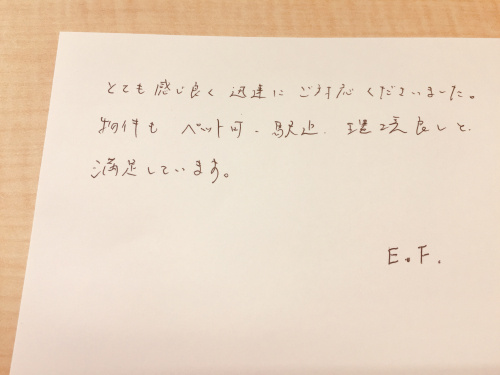 とても感じ良く 迅速に ご対応くださいました。
物件も ペット可、駅近、環境良しと
満足しています。
E.F.